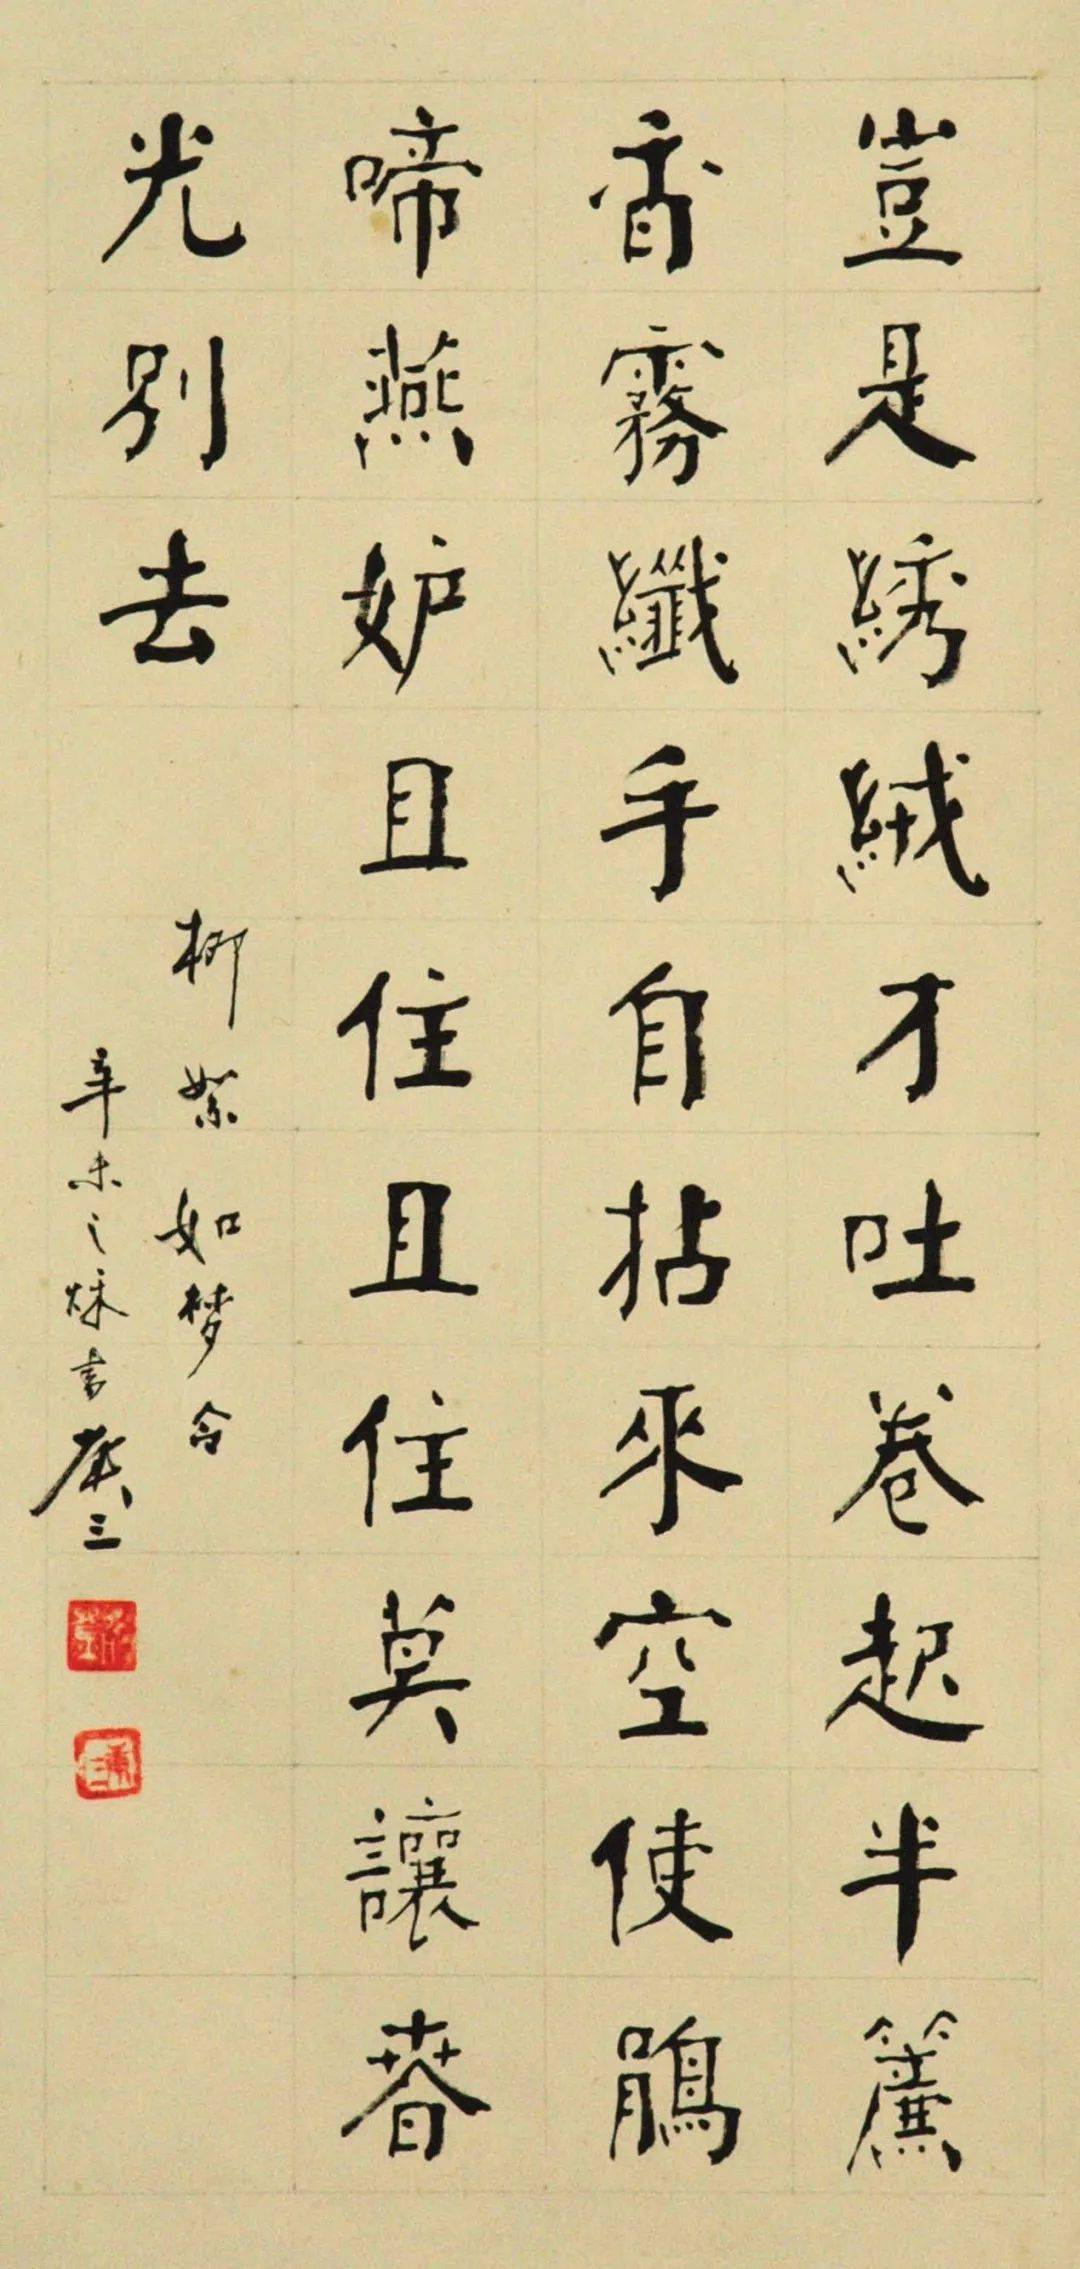 豈是綉絨才吐卷起半簾
香霧纖手自拈來空使鵑
啼燕妒且住且住莫讓春
光别去
柳絮如梦令
辛未之秋書庚三